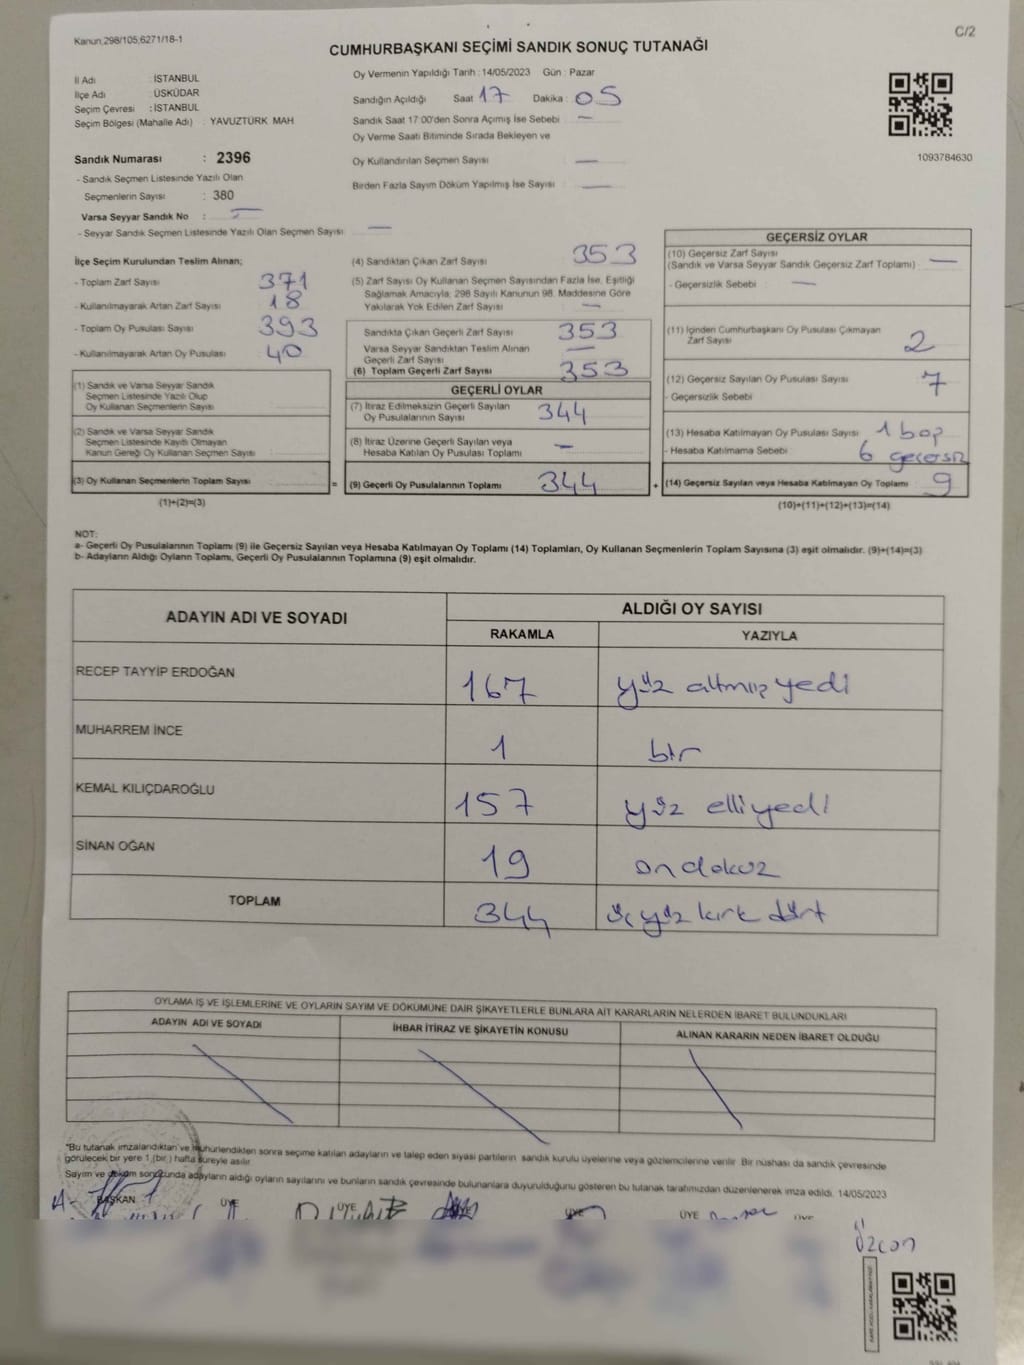 Kanun,298/105;6271/18-1
C/2
CUMHURBAŞKANI SEÇİMİ SANDIK SONUÇ TUTANAĞI
İl Adı : İSTANBUL
İlçe Adı : ÜSKÜDAR
Seçim Çevresi : İSTANBUL
Seçim Bölgesi (Mahalle Adı) : YAVUZTÜRK MAH
Sandık Numarası : 2396
- Sandık Seçmen Listesinde Yazılı Olan
Seçmenlerin Sayısı : 380
Varsa Seyyar Sandık No : -
- Seyyar Sandık Seçmen Listesinde Yazılı Olan Seçmen Sayısı: —
Oy Vermenin Yapıldığı Tarih : 14/05/2023 Gün : Pazar
Sandığın Açıldığı Saat 17 Dakika : 05
Sandık Saat 17:00'den Sonra Açımış İse Sebebi : —
Oy Verme Saati Bitiminde Sırada Bekleyen ve
Oy Kullandırılan Seçmen Sayısı : —
Birden Fazla Sayım Döküm Yapılmış İse Sayısı : —
1093784630
İlçe Seçim Kurulundan Teslim Alınan;
- Toplam Zarf Sayısı : 371
- Kullanılmayarak Artan Zarf Sayısı : 18
- Toplam Oy Pusulası Sayısı : 393
- Kullanılmayarak Artan Oy Pusulası : 40
(1) Sandık ve Varsa Seyyar Sandık
Seçmen Listesinde Yazılı Olup
Oy Kullanan Seçmenlerin Sayısı :
(2) Sandık ve Varsa Seyyar Sandık
Seçmen Listesinde Kayıtlı Olmayan
Kanun Gereği Oy Kullanan Seçmen Sayısı :
(3) Oy Kullanan Seçmenlerin Toplam Sayısı :
(1)+(2)=(3)
(4) Sandıktan Çıkan Zarf Sayısı : 353
(5) Zarf Sayısı Oy Kullanan Seçmen Sayısından Fazla İse, Eşitliği
Sağlamak Amacıyla; 298 Sayılı Kanunun 98. Maddesine Göre
Yakılarak Yok Edilen Zarf Sayısı : —
Sandıkta Çıkan Geçerli Zarf Sayısı : 353
Varsa Seyyar Sandıktan Teslim Alınan
Geçerli Zarf Sayısı : —
(6) Toplam Geçerli Zarf Sayısı : 353
GEÇERLİ OYLAR
(7) İtiraz Edilmeksizin Geçerli Sayılan
Oy Pusulalarının Sayısı : 344
(8) İtiraz Üzerine Geçerli Sayılan veya
Hesaba Katılan Oy Pusulası Toplamı : —
= (9) Geçerli Oy Pusulalarının Toplamı : 344
GEÇERSİZ OYLAR
(10) Geçersiz Zarf Sayısı
(Sandık ve Varsa Seyyar Sandık Geçersiz Zarf Toplamı) : —
- Geçersizlik Sebebi : —
(11) İçinden Cumhurbaşkanı Oy Pusulası Çıkmayan
Zarf Sayısı : 2
(12) Geçersiz Sayılan Oy Pusulası Sayısı : 7
- Geçersizlik Sebebi :
(13) Hesaba Katılmayan Oy Pusulası Sayısı : 1 boş
- Hesaba Katılmama Sebebi : 6 geçersiz
+ (14) Geçersiz Sayılan veya Hesaba Katılmayan Oy Toplamı : 9
(10)+(11)+(12)+(13)=(14)
NOT:
a- Geçerli Oy Pusulalarının Toplamı (9) ile Geçersiz Sayılan veya Hesaba Katılmayan Oy Toplamı (14) Toplamları, Oy Kullanan Seçmenlerin Toplam Sayısına (3) eşit olmalıdır. (9)+(14)=(3)
b- Adayların Aldığı Oyların Toplamı, Geçerli Oy Pusulalarının Toplamına (9) eşit olmalıdır.
ADAYIN ADI VE SOYADI
ALDIĞI OY SAYISI
RAKAMLA YAZIYLA
RECEP TAYYİP ERDOĞAN 167 yüz altmış yedi
MUHARREM İNCE 1 bir
KEMAL KILIÇDAROĞLU 157 yüz elli yedi
SİNAN OĞAN 19 on dokuz
TOPLAM 344 üç yüz kırk dört
OYLAMA İŞ VE İŞLEMLERİNE VE OYLARIN SAYIM VE DÖKÜMÜNE DAİR ŞİKAYETLERLE BUNLARA AİT KARARLARIN NELERDEN İBARET BULUNDUKLARI
ADAYIN ADI VE SOYADI
İHBAR İTİRAZ VE ŞİKAYETİN KONUSU
ALINAN KARARIN NEDEN İBARET OLDUĞU
*Bu tutanak imzalandıktan ve mühürlendikten sonra seçime katılan adayların ve talep eden siyasi partilerin sandık kurulu üyelerine veya gözlemcilerine verilir. Bir nüshası da sandık çevresinde
görülecek bir yere 1 (bir) hafta süreyle asılır.
Sayım ve döküm sonucunda adayların aldığı oyların sayılarını ve bunların sandık çevresinde bulunanlara duyurulduğunu gösteren bu tutanak tarafımızdan düzenlenerek imza edildi. 14/05/2023
BAŞKAN ÜYE ÜYE ÜYE ÜYE ÜYE
Özcan